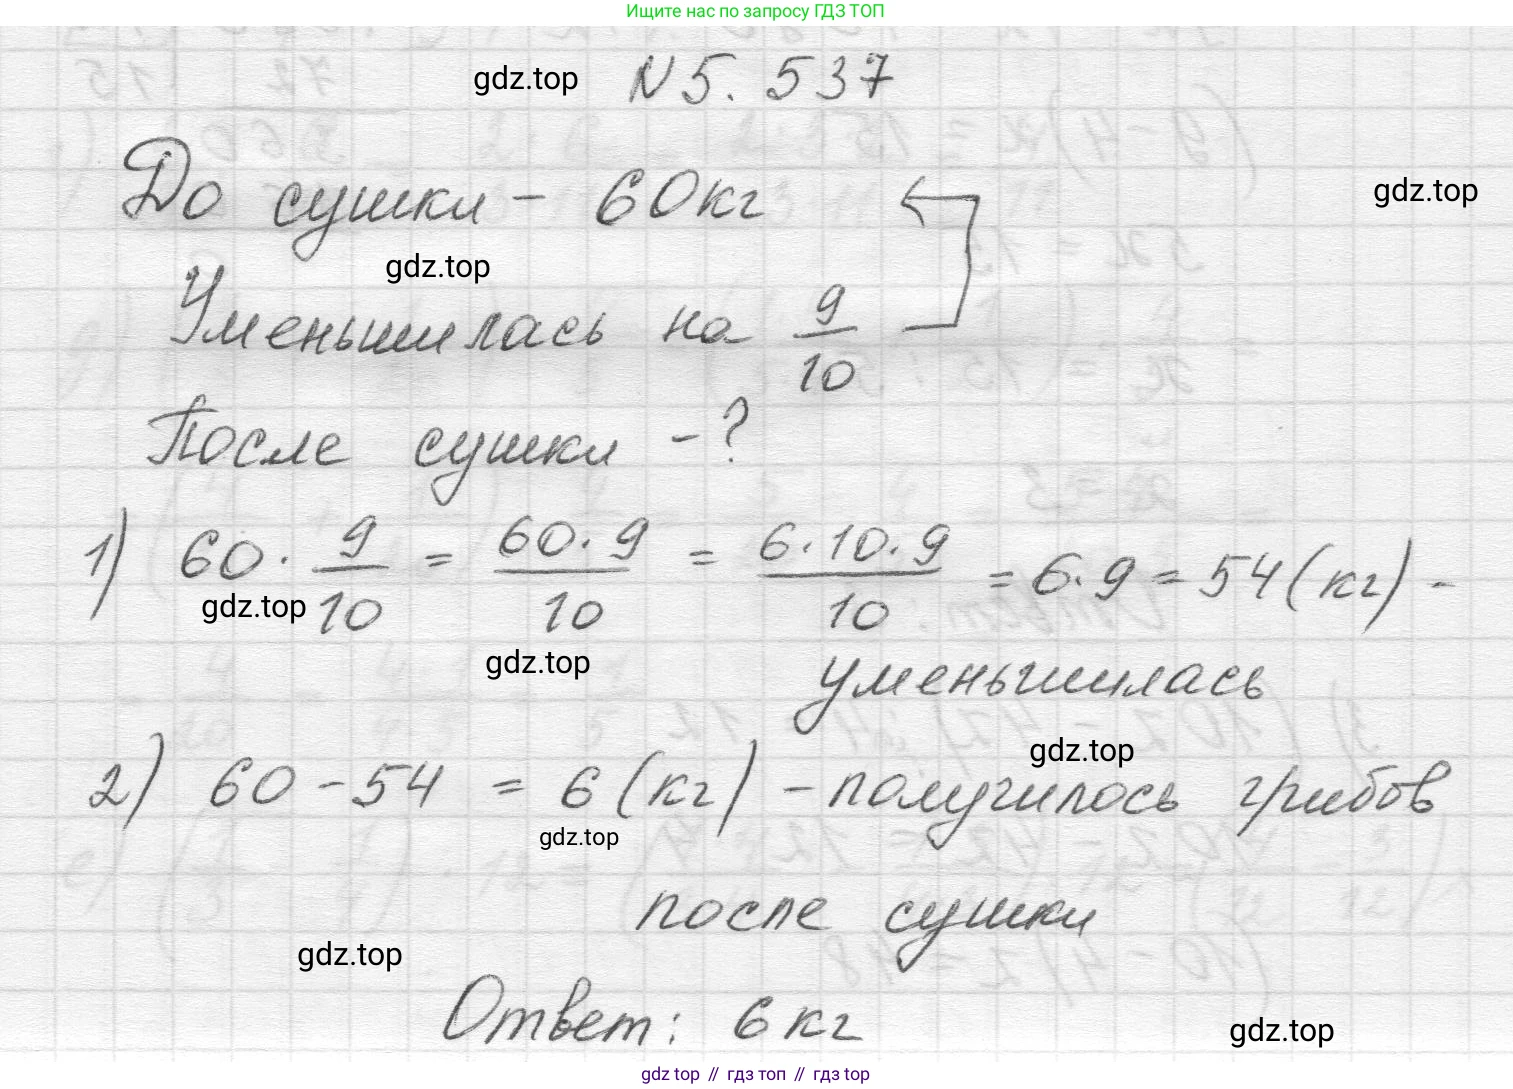 Ищите нас по запросу ГДЗ ТОП
gdz.top N 5. 537
До сушки – 60 кг
gdz.top
gdz.top
Уменьшилась на 9/10
После сушки – ?
1) 60 · 9/10 = 60 · 9/10 = 6 · 10 · 9/10 = 6 · 9 = 54 (кг) –
gdz.top
gdz.top
уменьшилась
gdz.top
2) 60 – 54 = 6 (кг) – получилось грибов
gdz.top
после сушки
gdz.top
Ответ: 6 кг
gdz.top
gdz top // гдз топ // gdz top